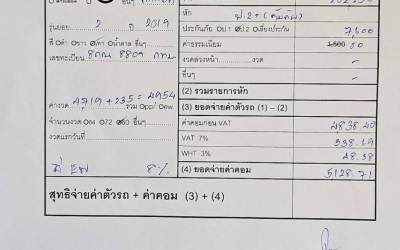 รุ่นย่อย 2 ปี 2019
สี Oดำ Oขาว Oเทา Oน้ำตาล อื่นๆ
เลขทะเบียน 8กณ 8809 กทม
ค่างวด 4719 + 235 = 4954 รวม Opp Onew
จำนวนงวด O84 O72 O60 อื่นๆ
งวดแรกวันที่
8%
หัก
ป.2+ (คุ้มภัย)
ประกันภัย Oป1 Oป2 Oเดี่ยงประกัน 7,600
ค่าธรรมเนียม 1,500 50
งวดล่วงหน้า งวด
อื่นๆ
(2) รวมรายการหัก
(3) ยอดจ่ายค่าตัวรถ (1) – (2)
ค่าคอมก่อน VAT 4838.40
VAT 7% 338.69
WHT 3% 48.38
(4) ยอดจ่ายค่าคอม 5128.71
สุทธิจ่ายค่าตัวรถ + ค่าคอม (3) + (4)